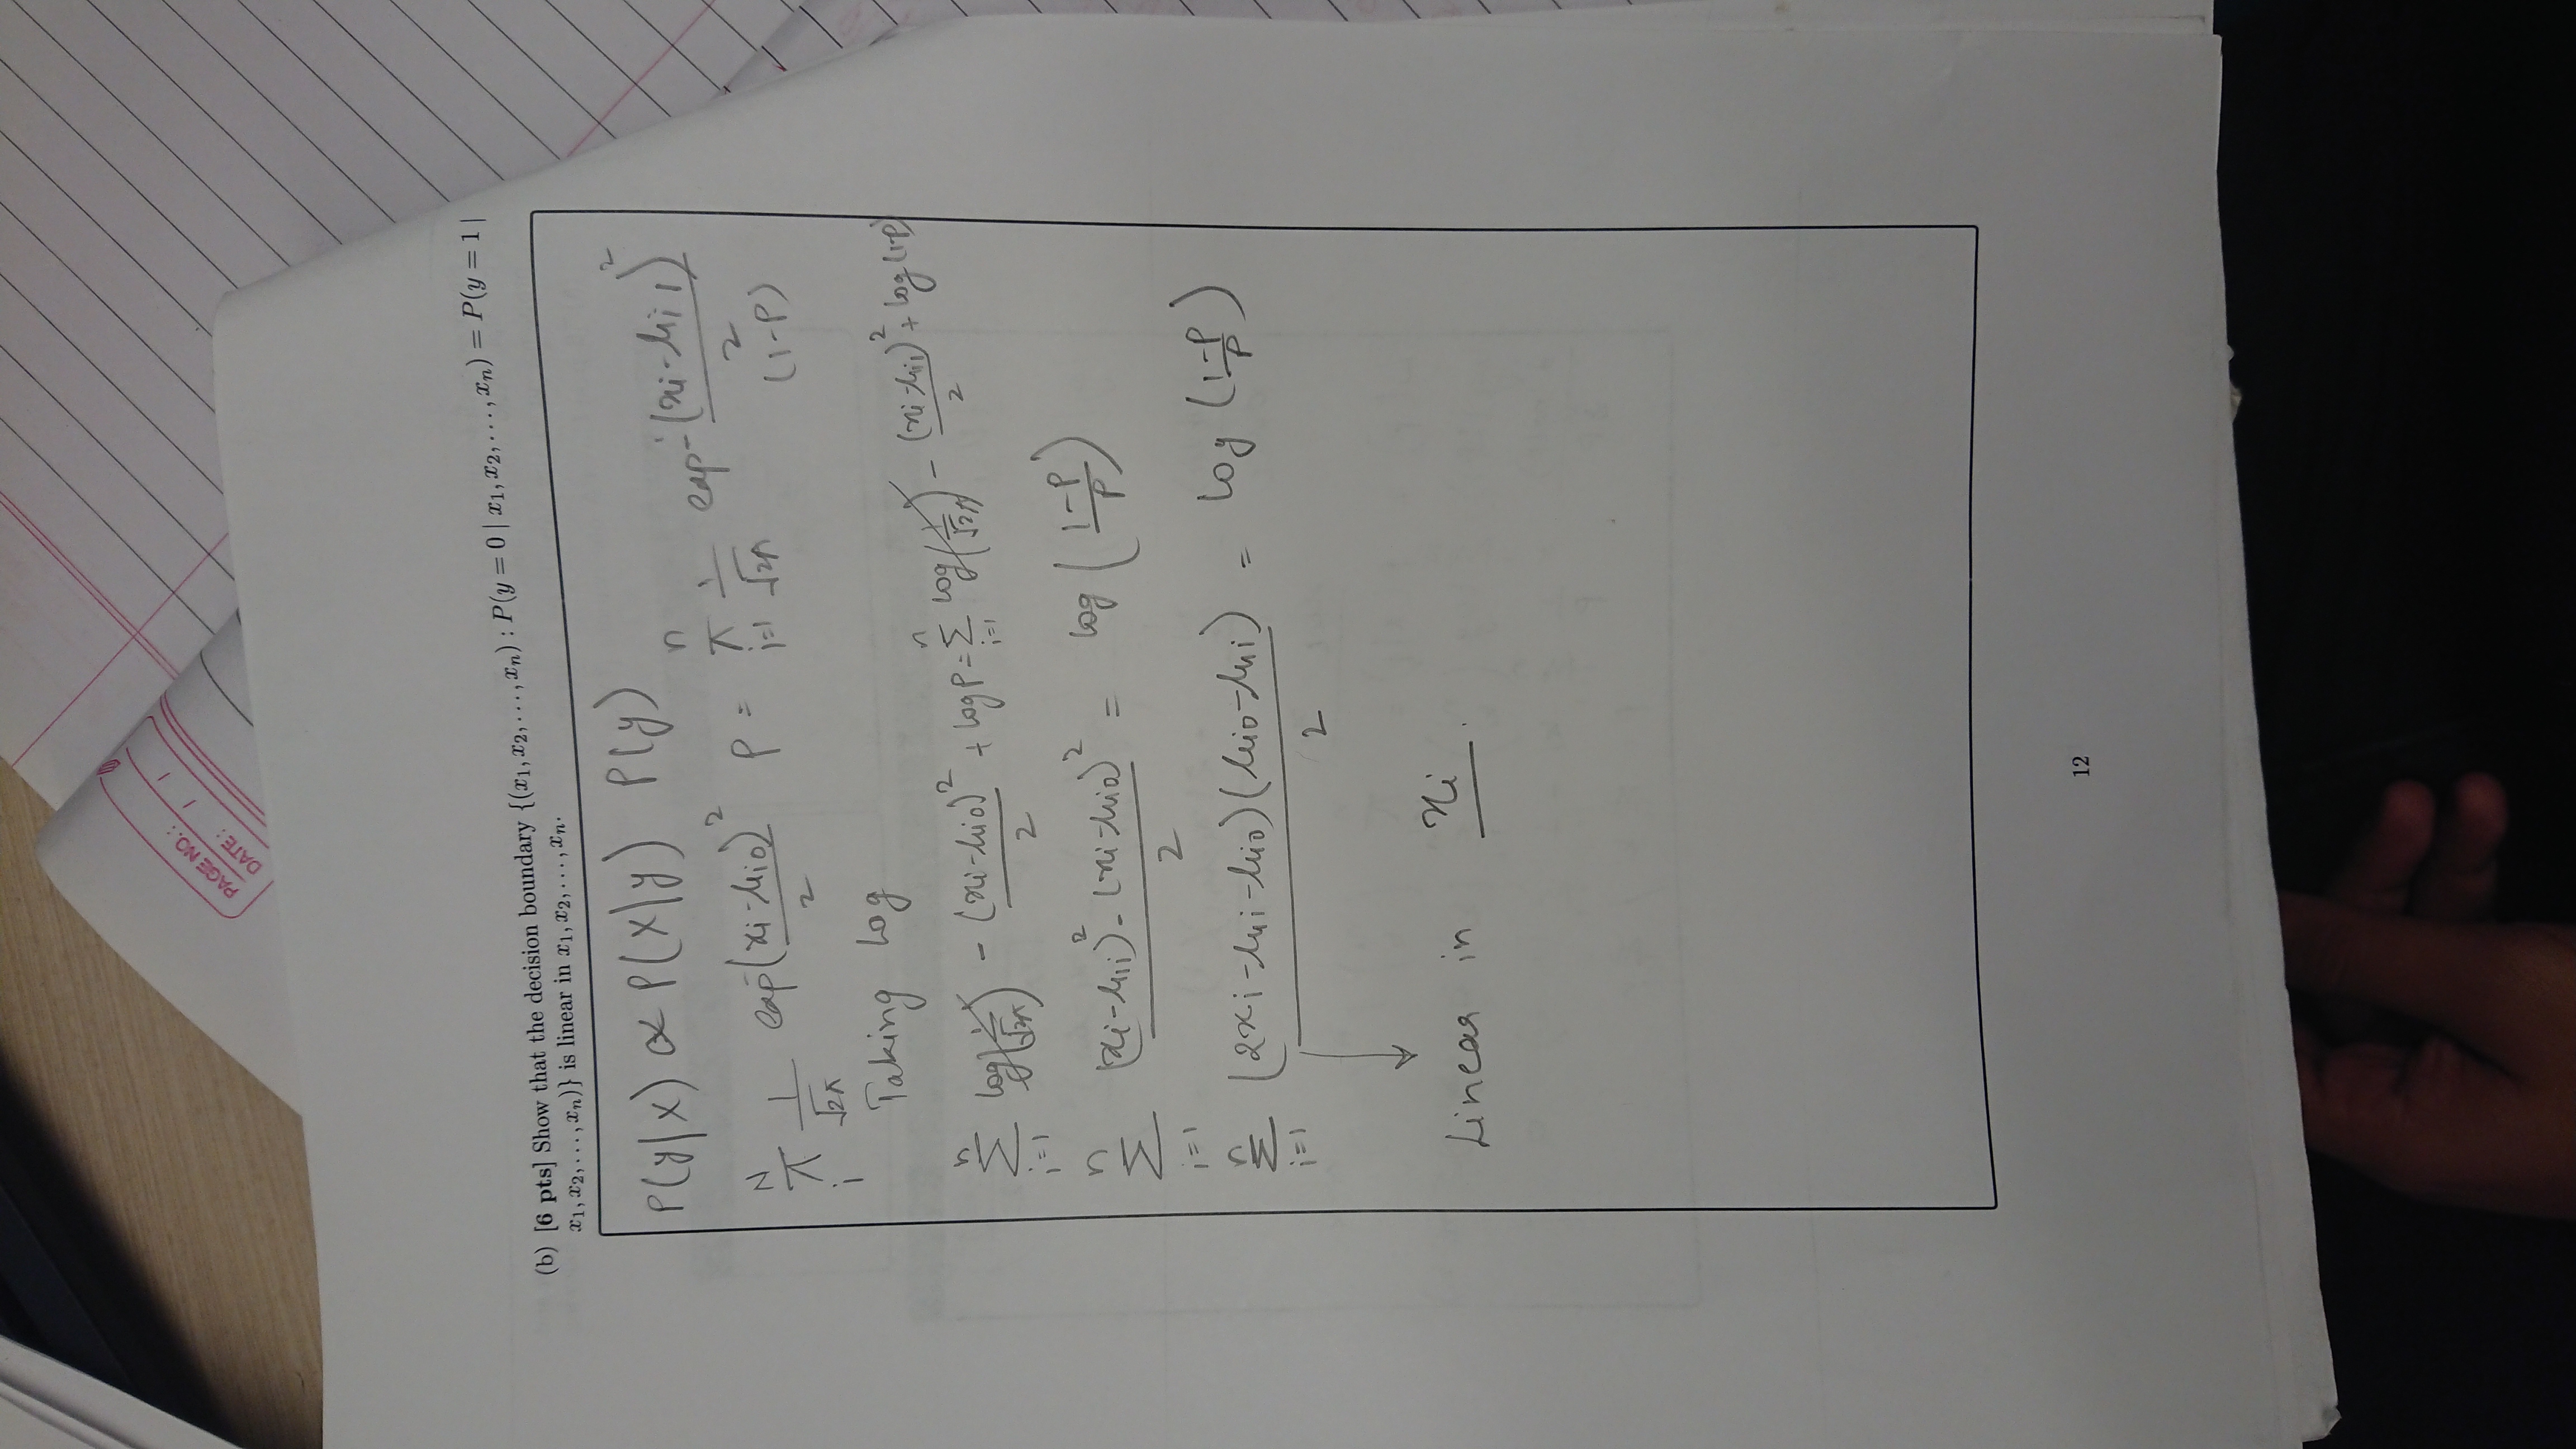 PAGE NO.:
DATE: / /
(b) [6 pts] Show that the decision boundary {(x₁, x₂, . . . , xₙ) : P(y = 0 | x₁, x₂, . . . , xₙ) = P(y = 1 |
x₁, x₂, . . . , xₙ)} is linear in x₁, x₂, . . . , xₙ.
P(y|x) ∝ P(x|y) P(y)
N π i 1/√2π exp-(xi-μi0)²/2 P = n π i=1 1/√2π exp-(xi-μi1)²/2 (1-P)
Taking log
n Σ i=1 log(1/√2π) - (xi-μi0)²/2 + log P = n Σ i=1 log(1/√2π) - (xi-μi1)²/2 + log(1-P)
n Σ i=1 (xi-μ1i)² - (xi-μi0)²/2 = log(1-P/P)
n Σ i=1 (2xi-μ1i-μi0)(μi0-μ1i)/2 = log(1-P/P)
Linear in xi.
12